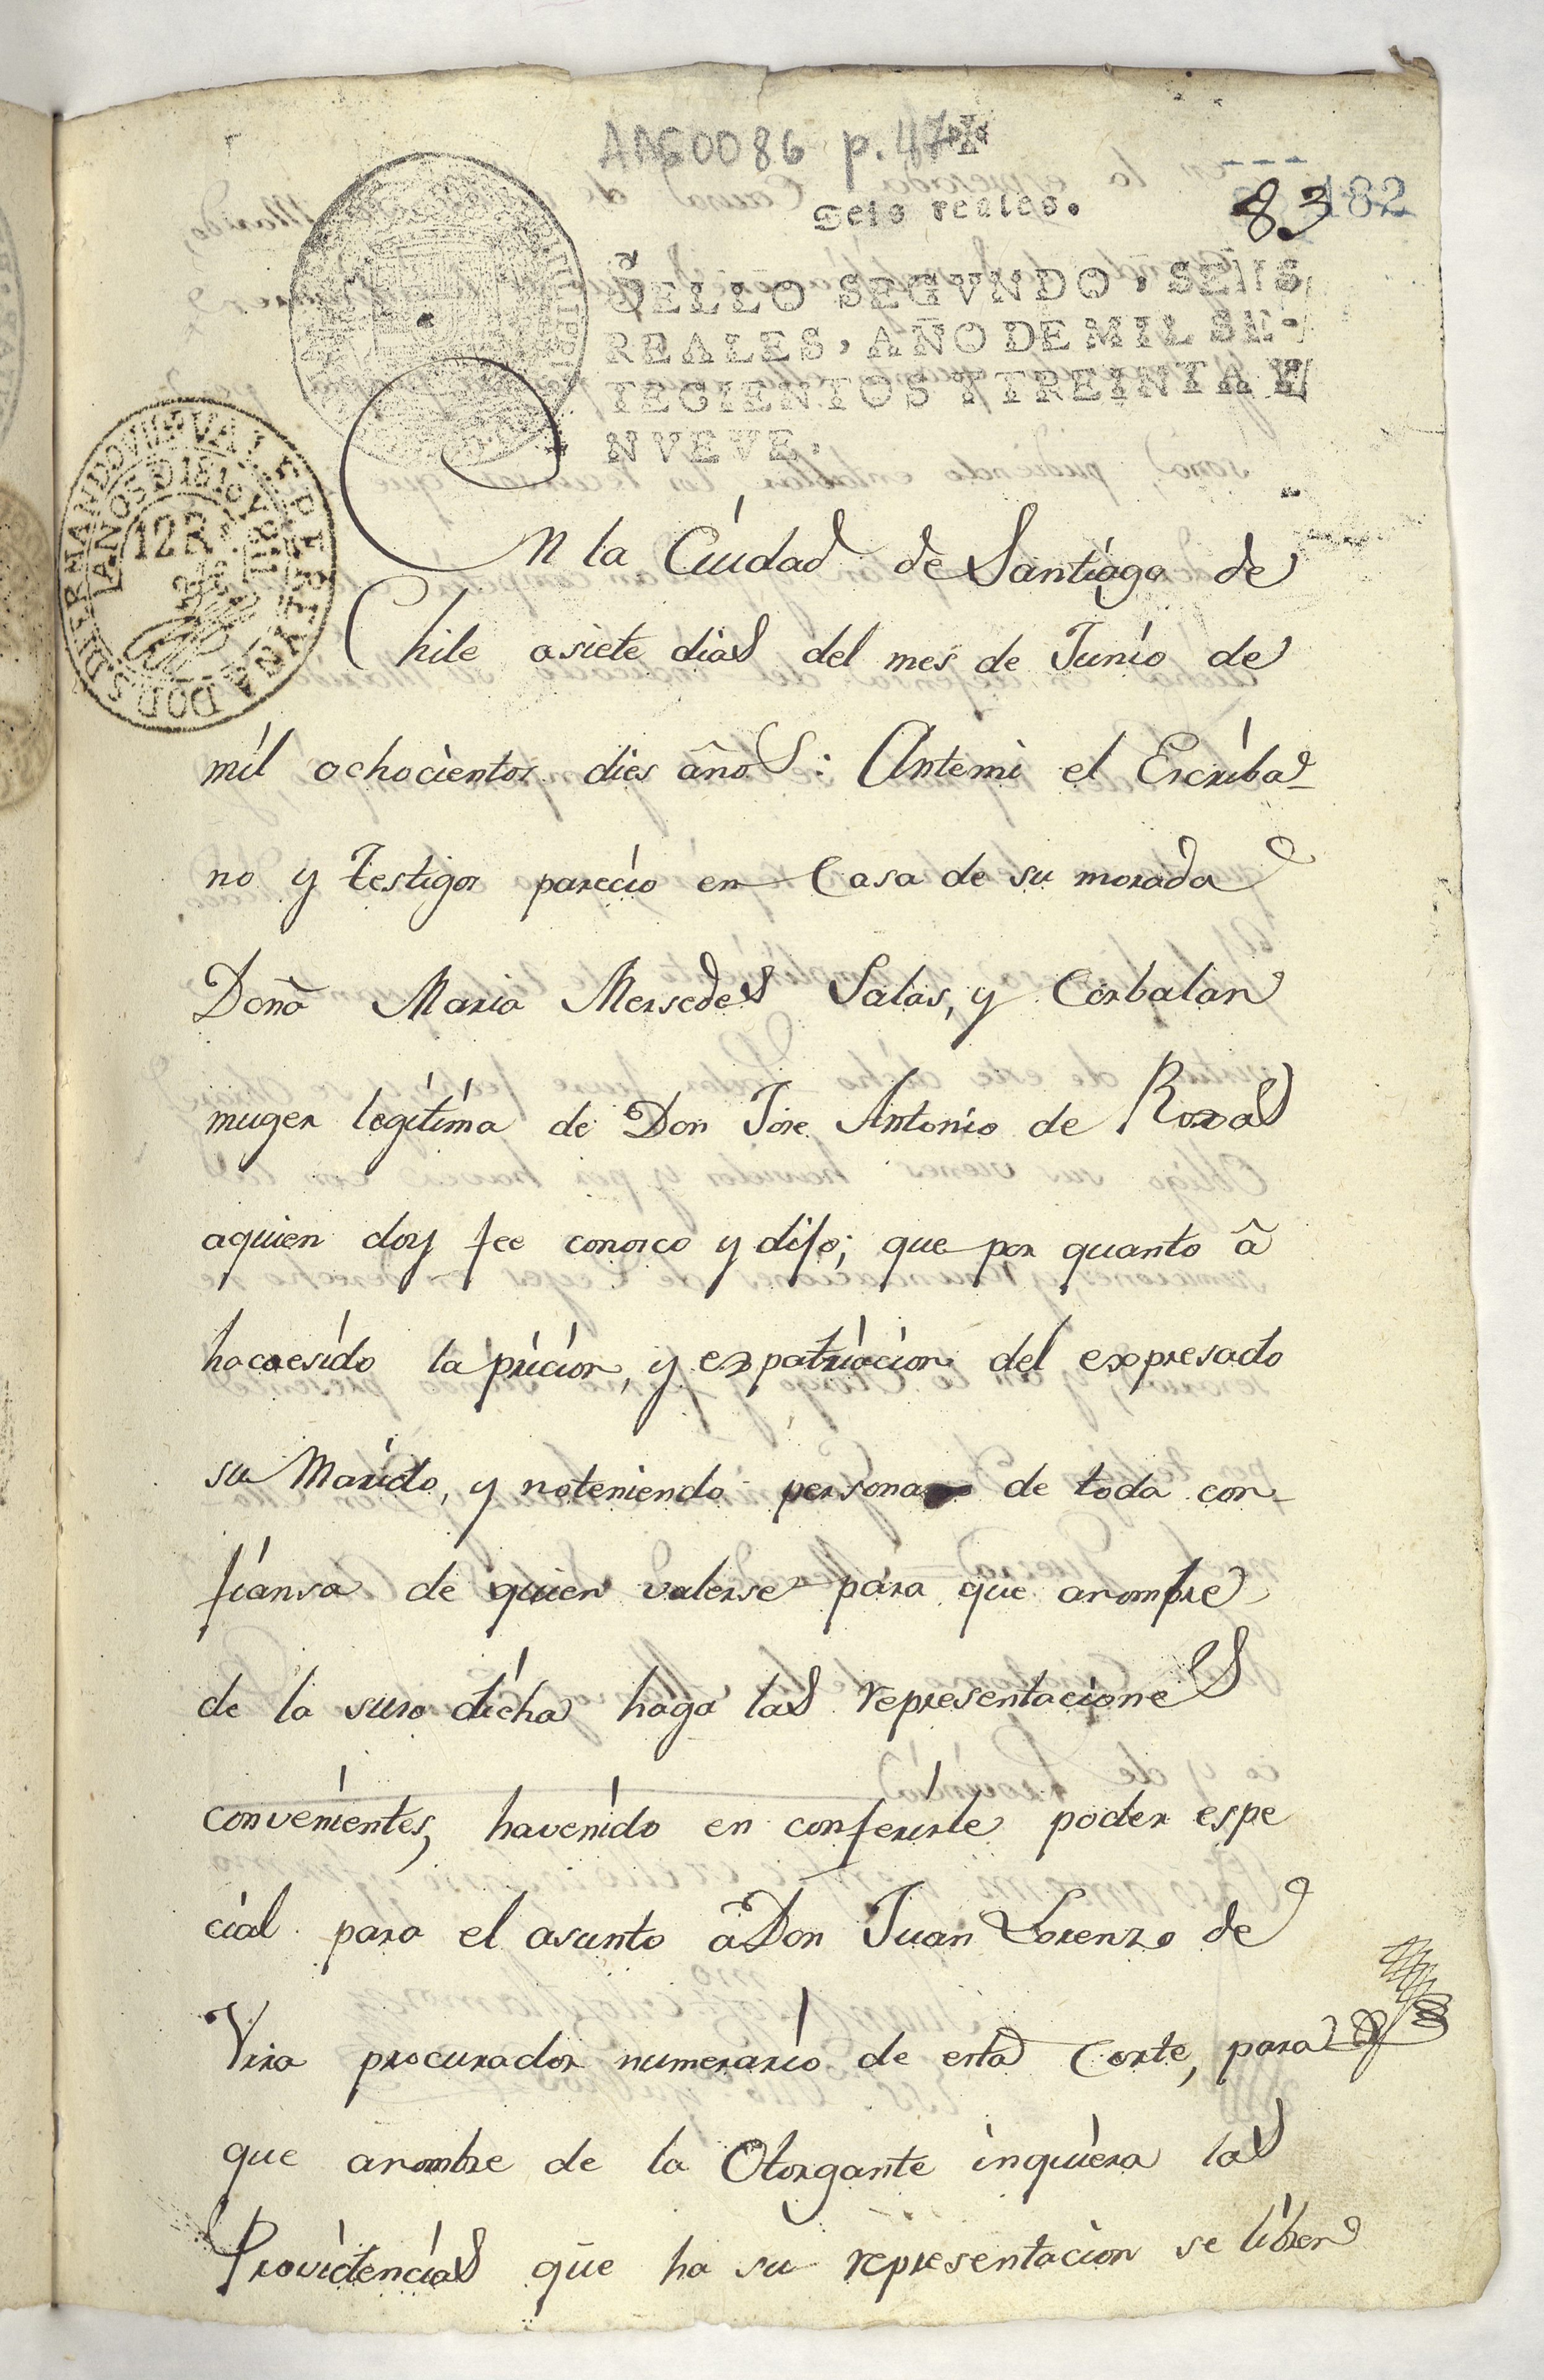 AAG0086 p. 47
Seis reales.
83 182
SELLO SEGVNDO, SEIS
REALES, AÑO DE MIL SE-
TECIENTOS Y TREINTA Y
NVEVE.
VALEPARA
AÑOS D 1810 Y 811
12R
En la Ciudad de Santiago de
Chile asiete dias del mes de Junio de
mil ochocientos dies años: Antemi el Escriba-
no y testigos parecio en Casa de su morada
Doña Maria Mersedes Salas, y Corbalan
muger legitima de Don Jose Antonio de Roxas
aquien doy fee conosco y dijo; que por quanto â
hacaesido la pricion, y expatriacion del expresado
su Marido, y noteniendo persona de toda con-
fiansa de quien valerse para que anombre
de la suso dicha haga las representaciones
convenientes, havenido en conferirle poder espe
cial para el asunto â Don Juan Lorenzo de
Vrra procurador numerario de esta Corte, para
que anombre de la Otorgante inquiera las
Providencias que ha su representacion se libren